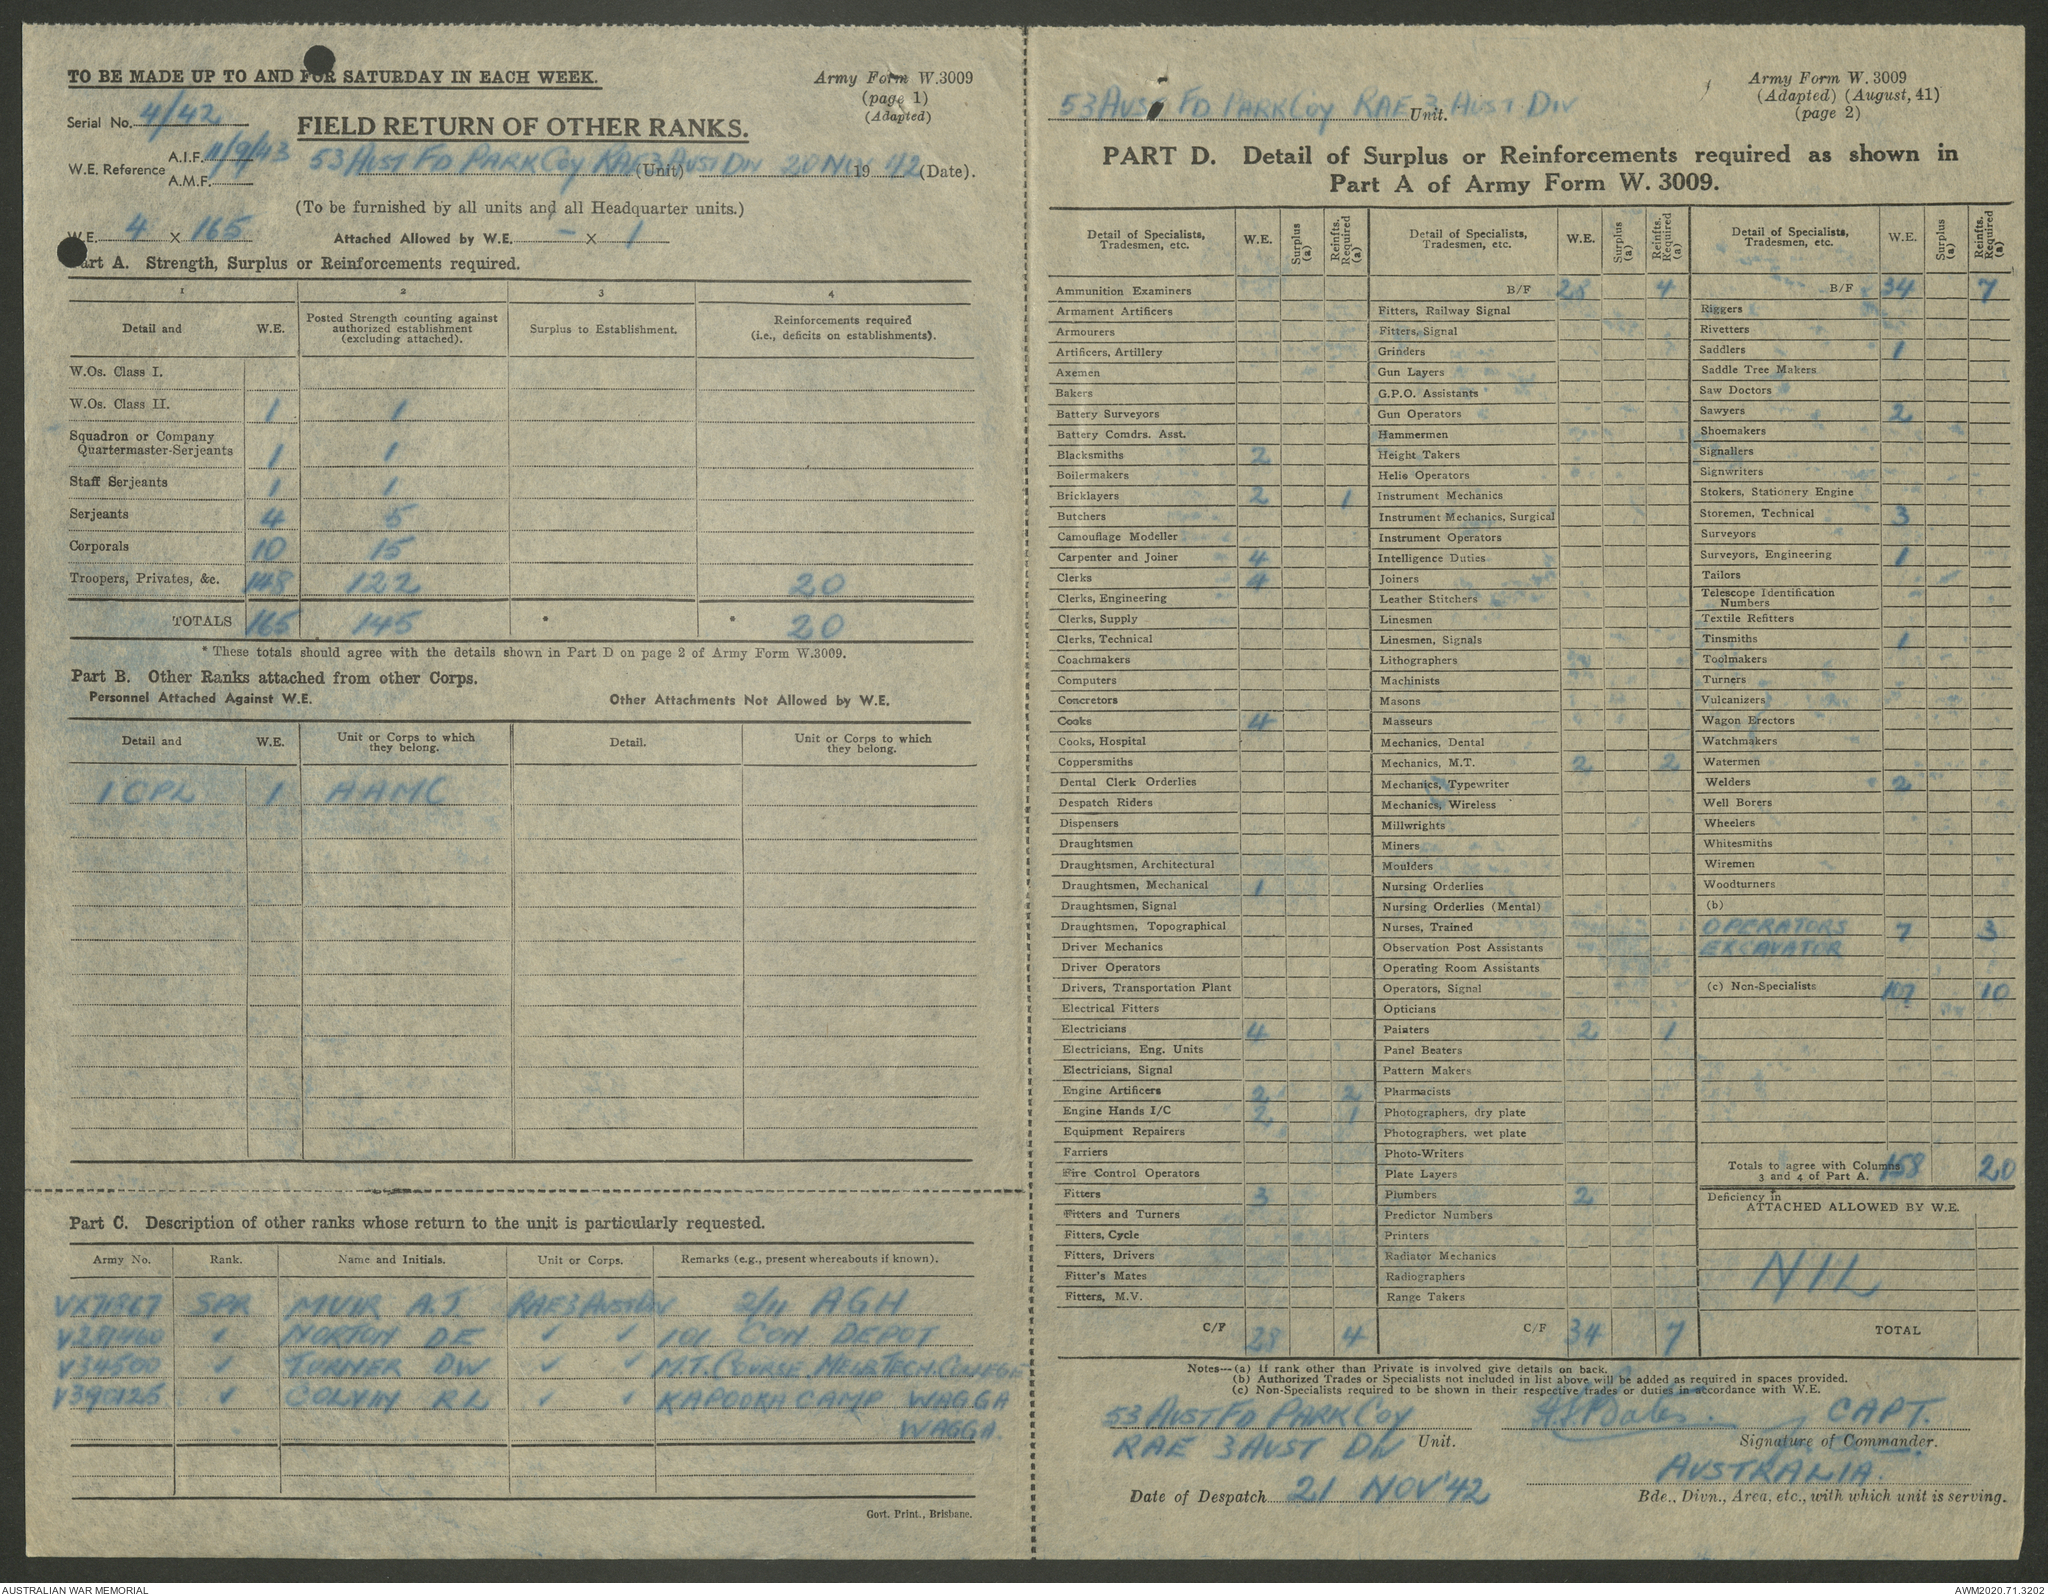 TO BE MADE UP TO AND FOR SATURDAY IN EACH WEEK.
Army Form W.3009
(page 1)
(Adapted)
Serial No. 4/42
FIELD RETURN OF OTHER RANKS.
W.E. Reference A.I.F. 11/9/43
A.M.F.
53 AUST FD PARK COY RAE 3 AUST DIV (Unit) 20 NOV 19 42 (Date).
(To be furnished by all units and all Headquarter units.)
W.E. 4 X 165 Attached Allowed by W.E. - X 1
Part A. Strength, Surplus or Reinforcements required.
1 2 3 4
Detail and W.E. Posted Strength counting against authorized establishment (excluding attached). Surplus to Establishment. Reinforcements required (i.e., deficits on establishments).
W.Os. Class I.
W.Os. Class II. 1 1
Squadron or Company
Quartermaster-Serjeants 1 1
Staff Serjeants 1 1
Serjeants 4 5
Corporals 10 15
Troopers, Privates, &c. 148 122 20
TOTALS 165 145 * * 20
* These totals should agree with the details shown in Part D on page 2 of Army Form W.3009.
Part B. Other Ranks attached from other Corps.
Personnel Attached Against W.E. Other Attachments Not Allowed by W.E.
Detail and W.E. Unit or Corps to which they belong. Detail. Unit or Corps to which they belong.
1 CPL 1 AAMC
Part C. Description of other ranks whose return to the unit is particularly requested.
Army No. Rank. Name and Initials. Unit or Corps. Remarks (e.g., present whereabouts if known).
SPR MUIR A.J RAE 3 AUST DIV 2/11 AGH
V281460 ✓ NORTON DE ✓ ✓ 101 CON DEPOT
V34500 ✓ TURNER DW ✓ ✓ M.T. COURSE. MELB TECH. COLLEGE
V390125 ✓ COLVIN RL ✓ ✓ KAPOOKA CAMP WAGGA
WAGGA.
Govt. Print., Brisbane.
53 AUST FD PARK COY RAE 3 AUST DIV Unit.
Army Form W. 3009
(Adapted) (August, 41)
(page 2)
PART D. Detail of Surplus or Reinforcements required as shown in
Part A of Army Form W. 3009.
Detail of Specialists, Tradesmen, etc. W.E. Surplus (a) Reinfts. Required (a)
Ammunition Examiners
Armament Artificers
Armourers
Artificers, Artillery
Axemen
Bakers
Battery Surveyors
Battery Comdrs. Asst.
Blacksmiths 2
Boilermakers
Bricklayers 2 1
Butchers
Camouflage Modeller
Carpenter and Joiner 4
Clerks 4
Clerks, Engineering
Clerks, Supply
Clerks, Technical
Coachmakers
Computers
Concretors
Cooks 4
Cooks, Hospital
Coppersmiths
Dental Clerk Orderlies
Despatch Riders
Dispensers
Draughtsmen
Draughtsmen, Architectural
Draughtsmen, Mechanical 1
Draughtsmen, Signal
Draughtsmen, Topographical
Driver Mechanics
Driver Operators
Drivers, Transportation Plant
Electrical Fitters
Electricians 4
Electricians, Eng. Units
Electricians, Signal
Engine Artificers 2 2
Engine Hands I/C 2 1
Equipment Repairers
Farriers
Fire Control Operators
Fitters 3
Fitters and Turners
Fitters, Cycle
Fitters, Drivers
Fitter's Mates
Fitters, M.V.
C/F 28 4
Detail of Specialists, Tradesmen, etc. W.E. Surplus (a) Reinfts. Required (a)
B/F 28 4
Fitters, Railway Signal
Fitters, Signal
Grinders
Gun Layers
G.P.O. Assistants
Gun Operators
Hammermen
Height Takers
Helio Operators
Instrument Mechanics
Instrument Mechanics, Surgical
Instrument Operators
Intelligence Duties
Joiners
Leather Stitchers
Linesmen
Linesmen, Signals
Lithographers
Machinists
Masons
Masseurs
Mechanics, Dental
Mechanics, M.T. 2 2
Mechanics, Typewriter
Mechanics, Wireless
Millwrights
Miners
Moulders
Nursing Orderlies
Nursing Orderlies (Mental)
Nurses, Trained
Observation Post Assistants
Operating Room Assistants
Operators, Signal
Opticians
Painters 2 1
Panel Beaters
Pattern Makers
Pharmacists
Photographers, dry plate
Photographers, wet plate
Photo-Writers
Plate Layers
Plumbers 2
Predictor Numbers
Printers
Radiator Mechanics
Radiographers
Range Takers
C/F 34 7
Detail of Specialists, Tradesmen, etc. W.E. Surplus (a) Reinfts. Required (a)
B/F 34 7
Riggers
Rivetters
Saddlers 1
Saddle Tree Makers
Saw Doctors
Sawyers 2
Shoemakers
Signallers
Signwriters
Stokers, Stationery Engine
Storemen, Technical 3
Surveyors
Surveyors, Engineering 1
Tailors
Telescope Identification
Numbers
Textile Refitters
Tinsmiths 1
Toolmakers
Turners
Vulcanizers
Wagon Erectors
Watchmakers
Watermen
Welders 2
Well Borers
Wheelers
Whitesmiths
Wiremen
Woodturners
(b)
OPERATORS 7 3
EXCAVATOR
(c) Non-Specialists 107 10
Totals to agree with Columns
3 and 4 of Part A. 158 20
Deficiency in
ATTACHED ALLOWED BY W.E.
NIL
TOTAL
Notes—(a) If rank other than Private is involved give details on back.
(b) Authorized Trades or Specialists not included in list above will be added as required in spaces provided.
(c) Non-Specialists required to be shown in their respective trades or duties in accordance with W.E.
53 AUST FD PARK COY
RAE 3 AUST DIV Unit.
CAPT.
Signature of Commander.
Date of Despatch 21 NOV '42
AUSTRALIA.
Bde., Divn., Area, etc., with which unit is serving.
AUSTRALIAN WAR MEMORIAL
AWM2020.71.3202